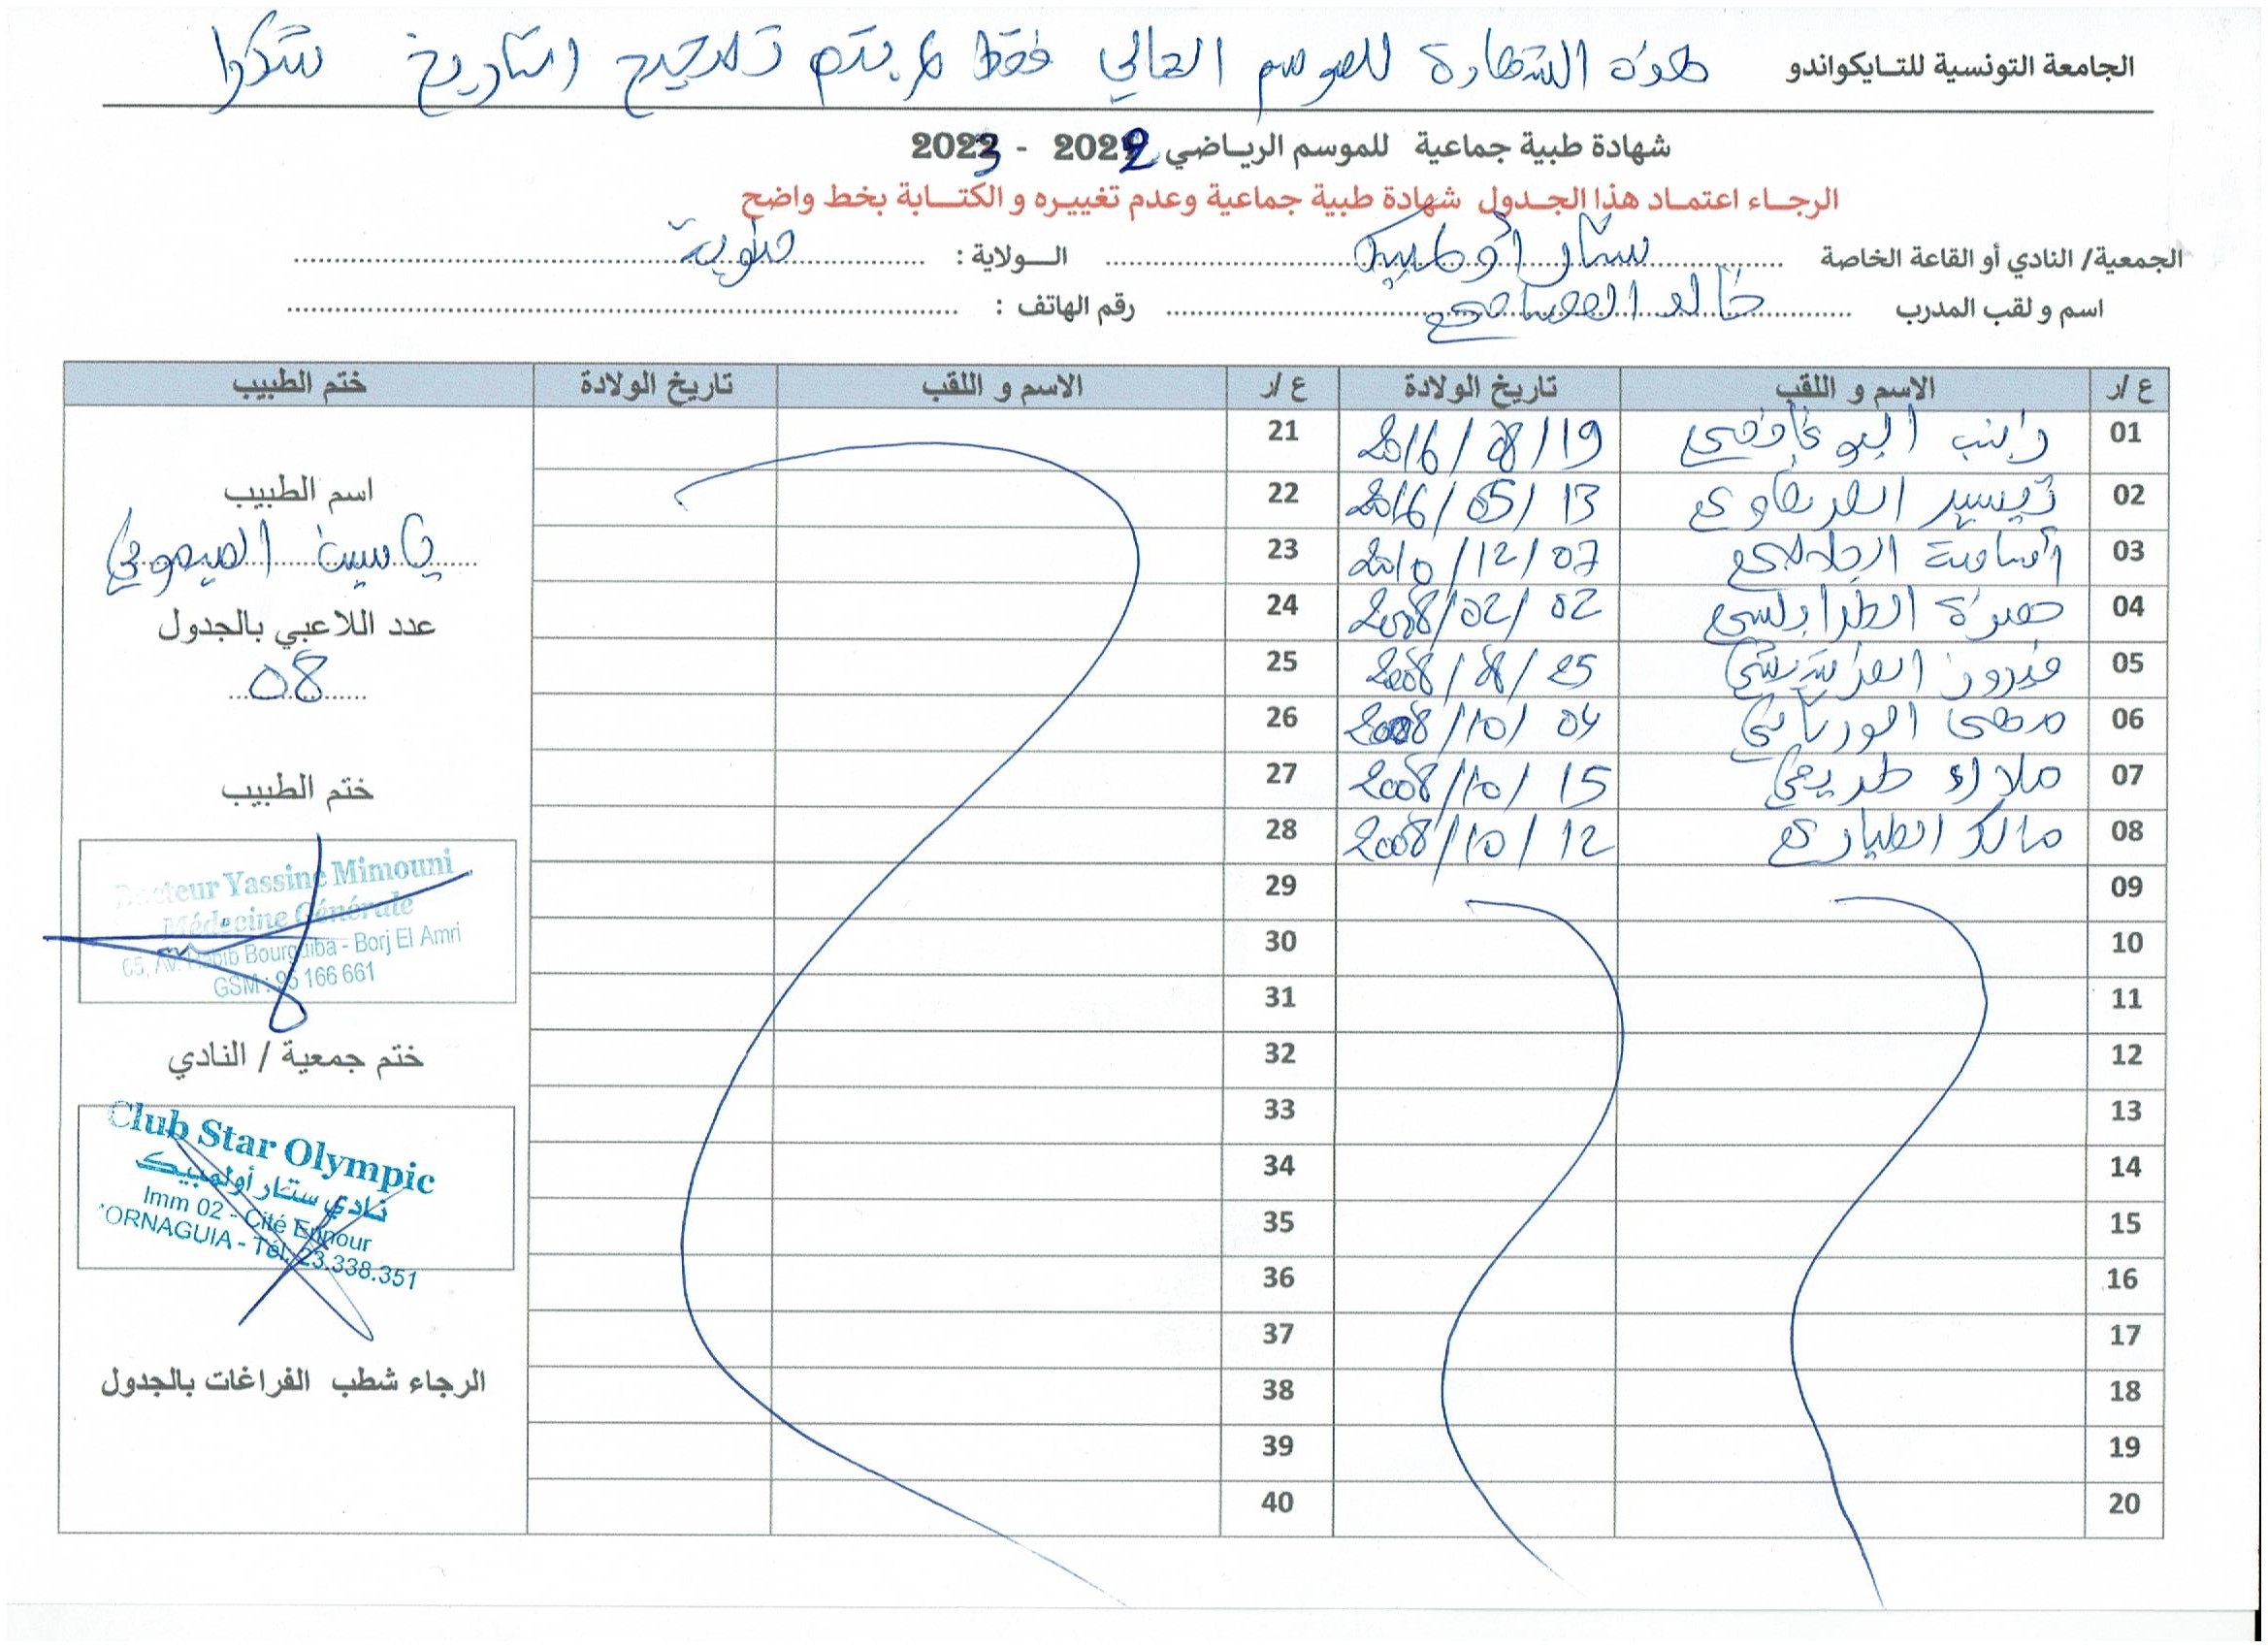 الجامعة التونسية للتايكواندو هذه الشهادة للموسم الحالي فقط و يتم تصحيح التاريخ شكرا
شهادة طبية جماعية للموسم الرياضي 2022 - 2023
الرجاء اعتماد هذا الجدول شهادة طبية جماعية وعدم تغييره و الكتابة بخط واضح
الجمعية/ النادي أو القاعة الخاصة ستار أولمبيك الولاية : منوبة
اسم و لقب المدرب خالد رقم الهاتف :
ع /ر الاسم و اللقب تاريخ الولادة ع /ر الاسم و اللقب تاريخ الولادة ختم الطبيب
01 زينب 2016/08/19 21
02 تيسير 2016/05/13 22
03 أسامة الجلالي 2010/12/07 23
04 حمزة الطرابلسي 2008/02/02 24
05 فيروز 2008/08/25 25
06 الورتاني 2008/10/04 26
07 ملاك طريحي 2008/10/15 27
08 مالك الطياري 2008/10/12 28
09 29
10 30
11 31
12 32
13 33
14 34
15 35
16 36
17 37
18 38
19 39
20 40
اسم الطبيب
ياسين الميموني
عدد اللاعبي بالجدول
08
ختم الطبيب
Docteur Yassine Mimouni
Médecine Générale
65, Av. Habib Bourguiba - Borj El Amri
GSM : 95 166 661
ختم جمعية / النادي
Club Star Olympic
نادي ستار أولمبيك
Imm 02 - Cité Ennour
ORNAGUIA - Tél: 23.338.351
الرجاء شطب الفراغات بالجدول